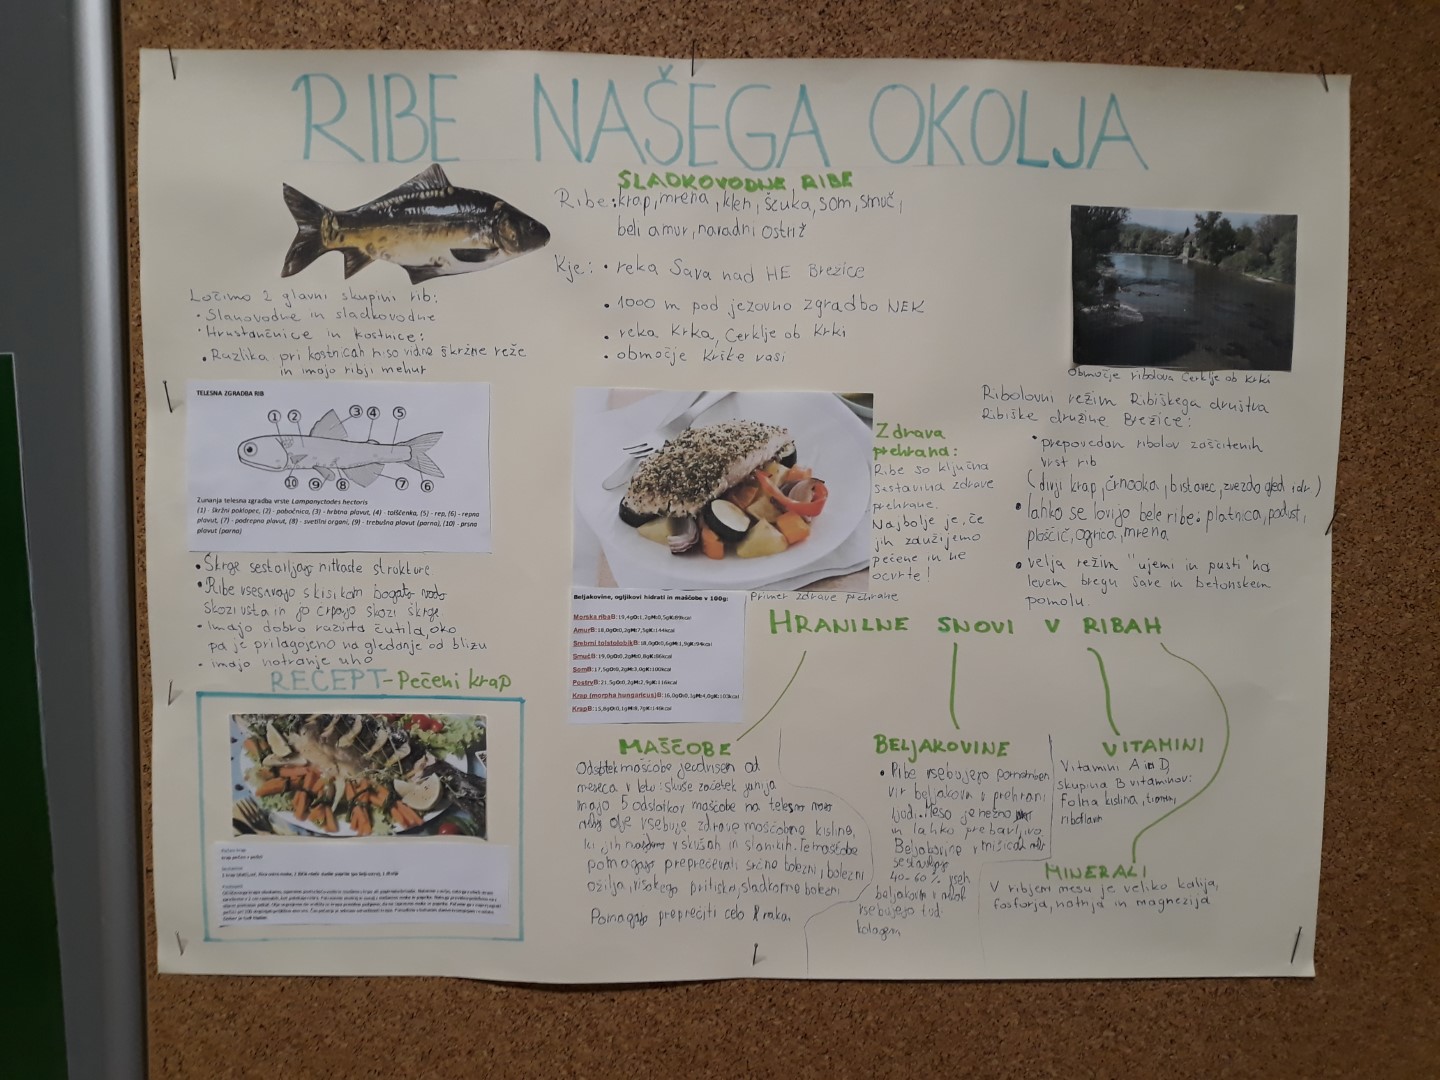 RIBE NAŠEGA OKOLJA
SLADKOVODNE RIBE
Ribe: krap, mrena, klen, ščuka, som, smuč,
beli amur, navadni ostriž
Kje: • reka Sava nad HE Brežice
• 1000 m pod jezovno zgradbo NEK
• reka Krka, Cerklje ob Krki
• območje Krške vasi
Ločimo 2 glavni skupini rib:
• Slanovodne in sladkovodne
• Hrustančnice in kostnice:
• Razlika pri kostnicah niso vidne škržne reže
in imajo ribji mehur
TELESNA ZGRADBA RIB
1 2 3 4 5
10 9 8 7 6
Zunanja telesna zgradba vrste Lampanyctodes hectoris
(1) - škržni poklopec, (2) - pobočnica, (3) - hrbtna plavut, (4) - tolščenka, (5) - rep, (6) - repna
plavut, (7) - podrepna plavut, (8) - svetilni organi, (9) - trebušna plavut (parna), (10) - prsna
plavut (parna)
• Škrge sestavljajo nitkaste strukture
• Ribe vsesavajo s kisikom bogato vodo
skozi usta in jo črpajo skozi škrge.
• Imajo dobro razvita čutila, oko
pa je prilagojeno na gledanje od blizu
• imajo notranje uho
RECEPT - Pečeni krap
Območje ribolova Cerklje ob Krki
Ribolovni režim Ribiškega društva
Ribiške družine Brežice:
• prepovedan ribolov zaščitenih
vrst rib
(divji krap, črnooka, bistavec, zvezdogled, idr.)
• lahko se lovijo bele ribe: platnica, podust,
ploščič, ogrica, mrena
• velja režim "ujemi in pusti" na
levem bregu Save in betonskem
pomolu.
Zdrava
prehrana:
Ribe so ključna
sestavina zdrave
prehrane.
Najbolje je, če
jih zaužijemo
pečene in ne
ocvrte!
Primer zdrave prehrane
Beljakovine, ogljikovi hidrati in maščobe v 100g:
Morska riba B:19,4g O:1,2g M:0,5g K:89kcal
Amur B:18,0g O:0,2g M:7,5g K:144kcal
Srebrni tolstolobik B:18,0g O:0,6g M:1,9g K:94kcal
Smuč B:19,0g O:0,2g M:0,8g K:86kcal
Som B:17,5g O:0,2g M:3,0g K:100kcal
Postrv B:21,5g O:0,2g M:2,9g K:116kcal
Krap (morpha hungaricus) B:16,0g O:0,1g M:4,0g K:103kcal
Krap B:15,8g O:0,1g M:8,7g K:146kcal
HRANILNE SNOVI V RIBAH
MAŠČOBE
Odstotek maščobe je odvisen od
meseca v letu: skuše začetek junija
imajo 5 odstotkov maščobe na telesno
olje vsebuje zdrave maščobne kisline,
ki jih najdemo v skušah in slanikih. Te maščobe
pomagajo preprečevati srčne bolezni, bolezni
ožilja, visokega pritiska, sladkorne bolezni
Pomagajo preprečiti celo raka.
BELJAKOVINE
• Ribe vsebujejo pomemben
vir beljakovin v prehrani
ljudi. Meso je nežno
in lahko prebavljivo
Beljakovine v mišicah
sestavljajo
40-60% vseh
beljakovin v
vsebujejo tudi
kolagen
VITAMINI
Vitamini A in D,
skupina B vitaminov:
Folna kislina, tiamin,
riboflavin
MINERALI
V ribjem mesu je veliko kalija,
fosforja, natrija in magnezija